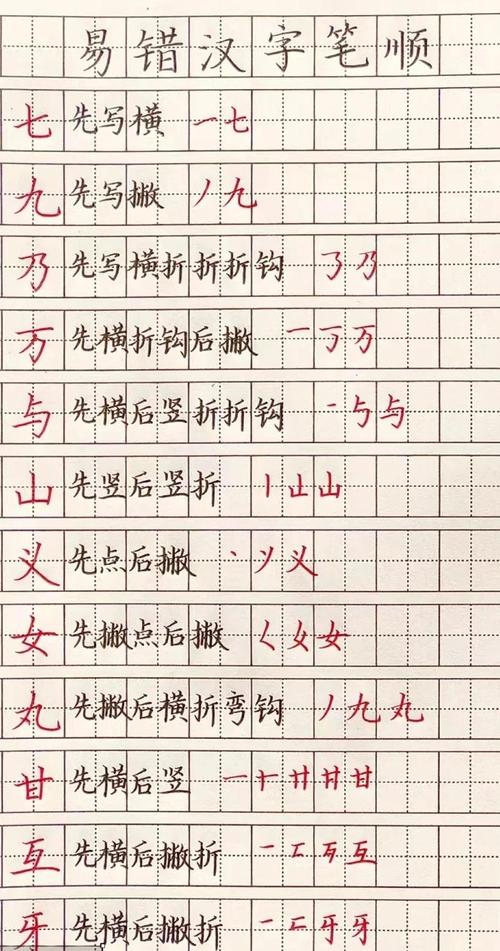 易错汉字笔顺
七 先写横 一七
九 先写撇 丿九
乃 先写横折折折钩 𠄎乃
万 先横折钩后撇 一丁万
与 先横后竖折折钩 一与与
山 先竖后竖折 丨山山
义 先点后撇 丶丷义
女 先撇点后撇 𡿨女女
丸 先撇后横折弯钩 丿九丸
甘 先横后竖 一十廿甘甘
互 先横后撇折 一互互互
牙 先横后撇折 一牙牙